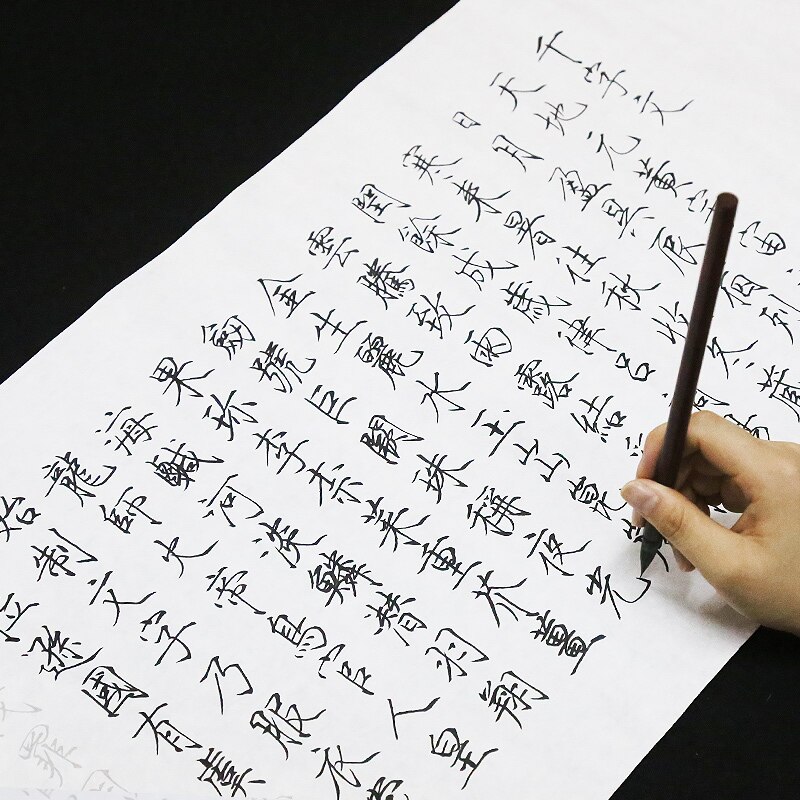 千字文
天地元黄宇宙
日月盈昃辰宿列
寒来暑往秋收冬藏
閏餘成歲律吕調陽
雲騰致雨露結
金生麗水玉出崑
劍號巨闕珠稱夜光
果珍李柰菜重芥薑
海鹹河淡鱗潛羽翔
龍師火帝鳥官人皇
始制文字乃服衣裳
位遜國有虞